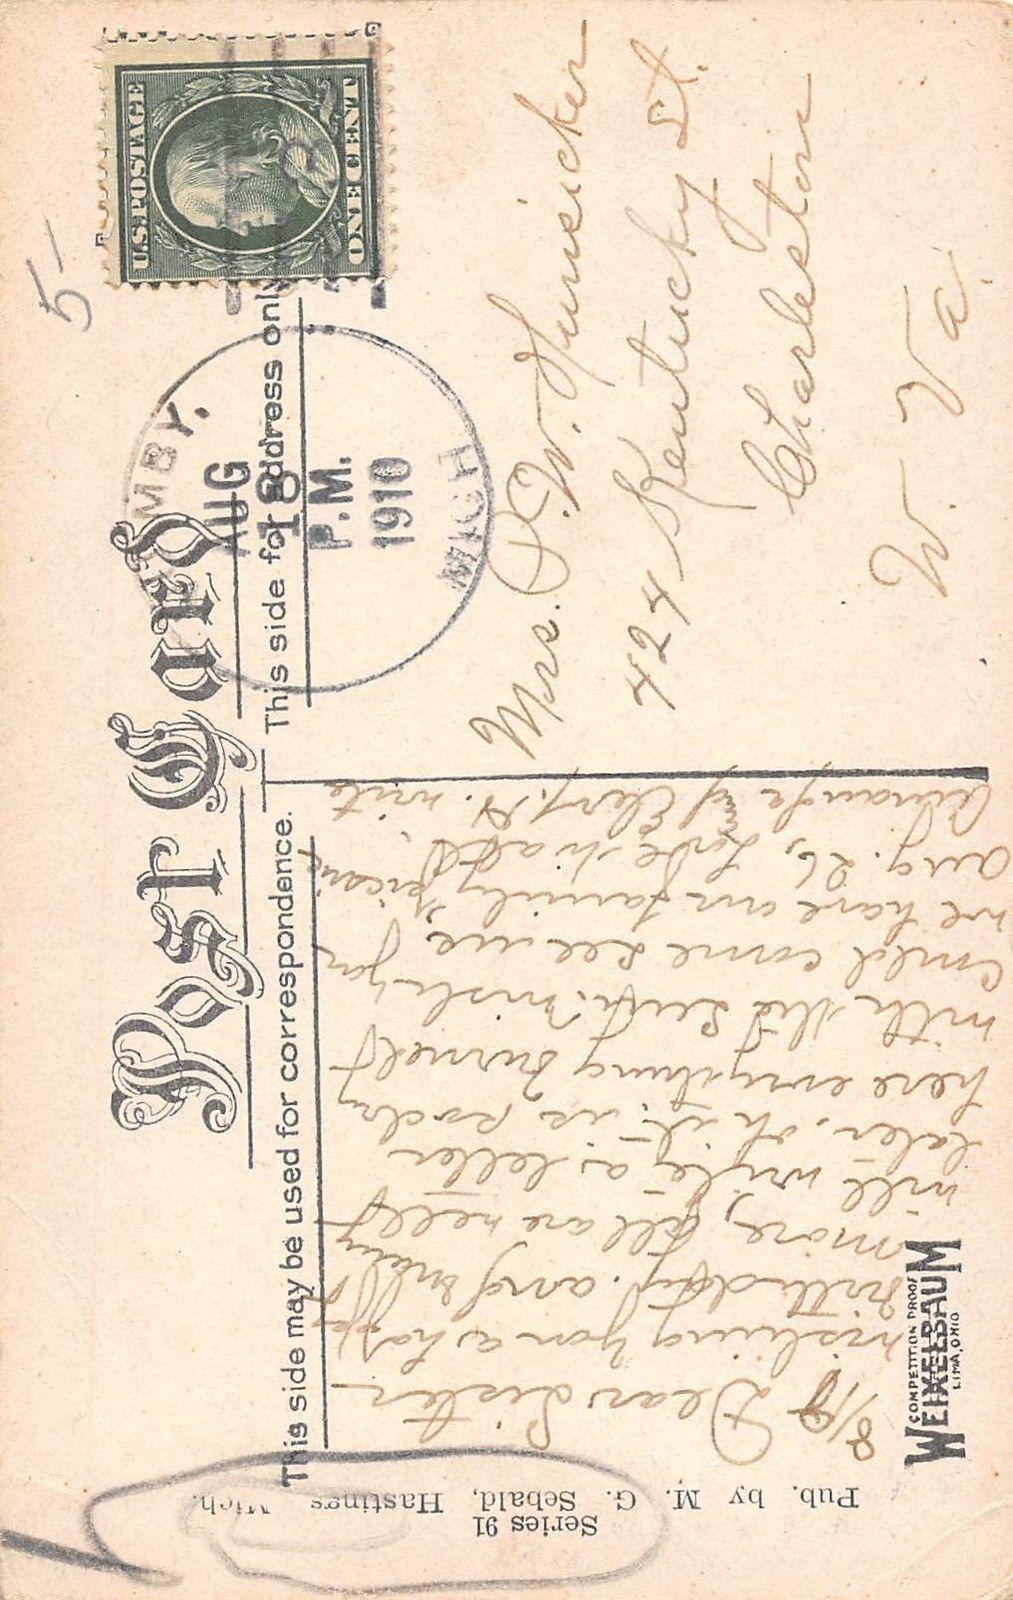 Post Card
This side may be used for correspondence.
This side for address only
U.S. POSTAGE
ONE CENT
MBY.
AUG
18
P.M.
1910
MICH
5-
Mrs. P. W. Hunsicker
424 Kentucky St.
Charleston
W. Va.
8/18
Dear Sister
wishing you a happy
birthday. and many
more, all are well
will write a letter
later. oh it is so dry
here everything burned
with the sun. wish you
could come see me,
we have our family picnic
Aug. 26, Love to all.
write
Pub. by M. G. Sebald, Hastings Mich.
Series 91
COMPETITION PROOF
WEIXELBAUM
LIMA, OHIO